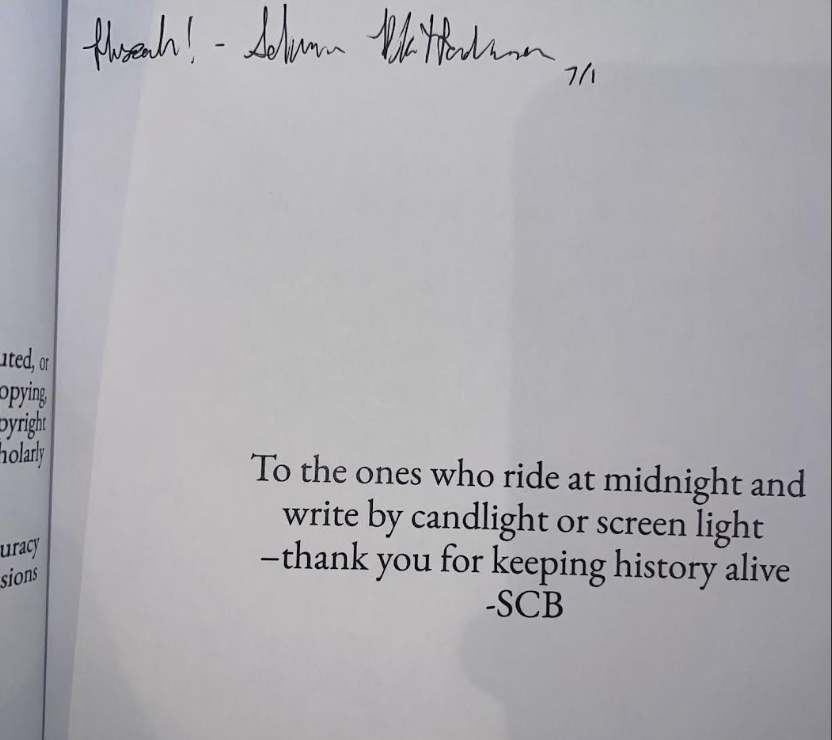 Huzzah! -
7/1
uted, or
opying,
pyright
holarly
uracy
sions
To the ones who ride at midnight and
write by candlight or screen light
–thank you for keeping history alive
-SCB